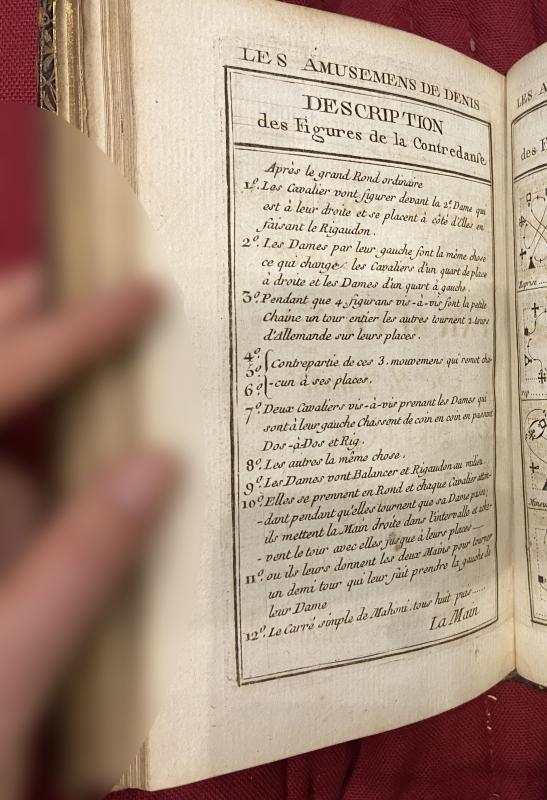 LES AMUSEMENS DE DENIS
DESCRIPTION
des Figures de la Contredanse
Après le grand Rond ordinaire
1º. Les Cavalier vont figurer devant la 2º. Dame qui
est à leur droite et se placent à côté d'Elles en
faisant le Rigaudon.
2º. Les Dames par leur gauche font la même chose
ce qui change les Cavaliers d'un quart de place
à droite et les Dames d'un quart à gauche.
3º. Pendant que 4 figurans vis-à-vis font la petite
Chaine un tour entier les autres tournent 2 tours
d'Allemande sur leurs places.
4º.
5º { Contrepartie de ces 3. mouvemens qui remet cha-
6º. -cun à ses places.
7º. Deux Cavaliers vis-à-vis prenant les Dames qui
sont à leur gauche Chassent de coin en coin en passant
Dos-à-Dos et Rig.
8º. Les autres la même chose.
9º. Les Dames vont Balancer et Rigaudon au milieu.
10º. Elles se prennent en Rond et chaque Cavalier atten-
-dant pendant qu'elles tournent que sa Dame passe;
ils mettent la Main droite dans l'intervalle et
-vent le tour avec elles jusque à leurs places
11º. ou ils leurs donnent les deux Mains pour tourner
un demi tour qui leur fait prendre la gauche de
leur Dame
12º. Le Carré simple de Mahoni. tous huit pas
La Main
LES A
des F